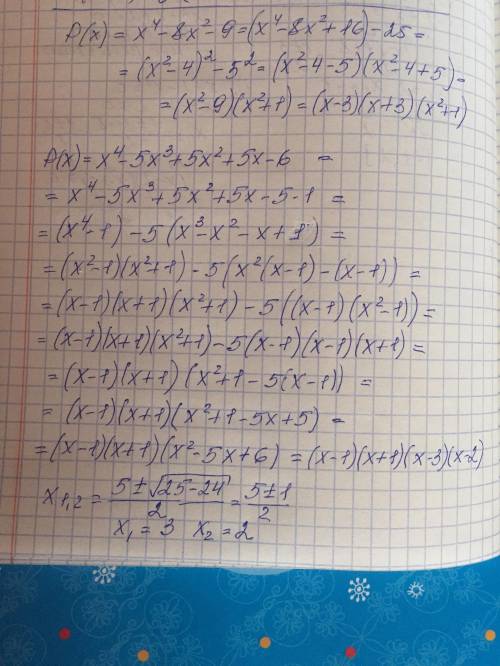 P(x) = x⁴-8x²-9 = (x⁴-8x²+16)-25 =
= (x²-4)²-5² = (x²-4-5)(x²-4+5) =
= (x²-9)(x²+1) = (x-3)(x+3)(x²+1)
P(x) = x⁴-5x³+5x²+5x-6 =
= x⁴-5x³+5x²+5x-5-1 =
= (x⁴-1)-5(x³-x²-x+1) =
= (x²-1)(x²+1)-5(x²(x-1)-(x-1)) =
= (x-1)(x+1)(x²+1)-5((x-1)(x²-1)) =
= (x-1)(x+1)(x²+1)-5(x-1)(x-1)(x+1) =
= (x-1)(x+1)(x²+1-5(x-1)) =
= (x-1)(x+1)(x²+1-5x+5) =
= (x-1)(x+1)(x²-5x+6) = (x-1)(x+1)(x-3)(x-2)
x₁,₂ = (5±√(25-24))/2 = (5±1)/2
x₁ = 3 x₂ = 2